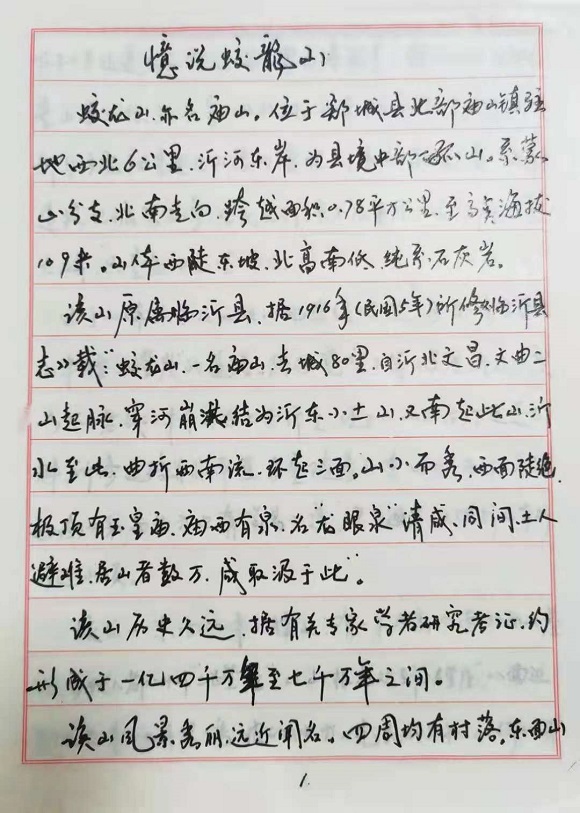 憶说蛟龍山
蛟龙山、亦名庙山。位于郯城县北部庙山镇驻
地西北6公里、沂河东岸、为县境中部孤山。系蒙
山分支、北南走向、跨越面积0.78平方公里、至高点海拔
109米。山体西陡东坡、北高南低、纯系石灰岩。
该山原属临沂县、据1916年(民国5年)所修临沂县
志》载:"蛟龙山、一名庙山、去城80里、自沂北文昌、文曲二
山起脉、穿河崩洪结为沂东小土山、又南起此山沂
水至此、曲折西南流、环起三面。山小而秀、西面陡绝、
极顶有玉皇庙、庙西有泉、名"龙眼泉"清咸、同间、土人
避难、居山者数万、咸取汲于此"。
该山历史久远、据有关专家学者研究考证、约
形成于一亿四千万年至七千万年之间。
该山风景秀丽、远近闻名。四周均有村落。东面山
1.